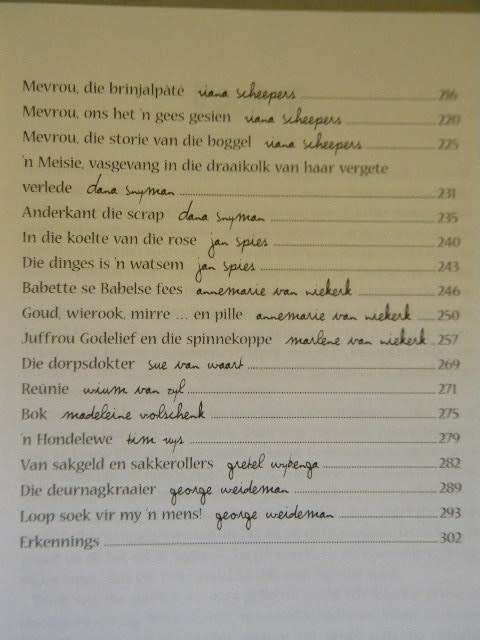 Mevrou, die brinjalpatê riana scheepers 216
Mevrou, ons het 'n gees gesien riana scheepers 220
Mevrou, die storie van die boggel riana scheepers 225
'n Meisie, vasgevang in die draaikolk van haar vergete
verlede dana snyman 231
Anderkant die scrap dana snyman 235
In die koelte van die rose jan spies 240
Die dinges is 'n watsem jan spies 243
Babette se Babelse fees annemarie van niekerk 246
Goud, wierook, mirre ... en pille annemarie van niekerk 250
Juffrou Godelief en die spinnekoppe marlene van niekerk 257
Die dorpsdokter sue van waart 269
Reünie wium van zyl 271
Bok madeleine volschenk 275
'n Hondelewe tom uys 279
Van sakgeld en sakkerollers gretel wybenga 282
Die deurnagkraaier george weideman 289
Loop soek vir my 'n mens! george weideman 293
Erkennings 302